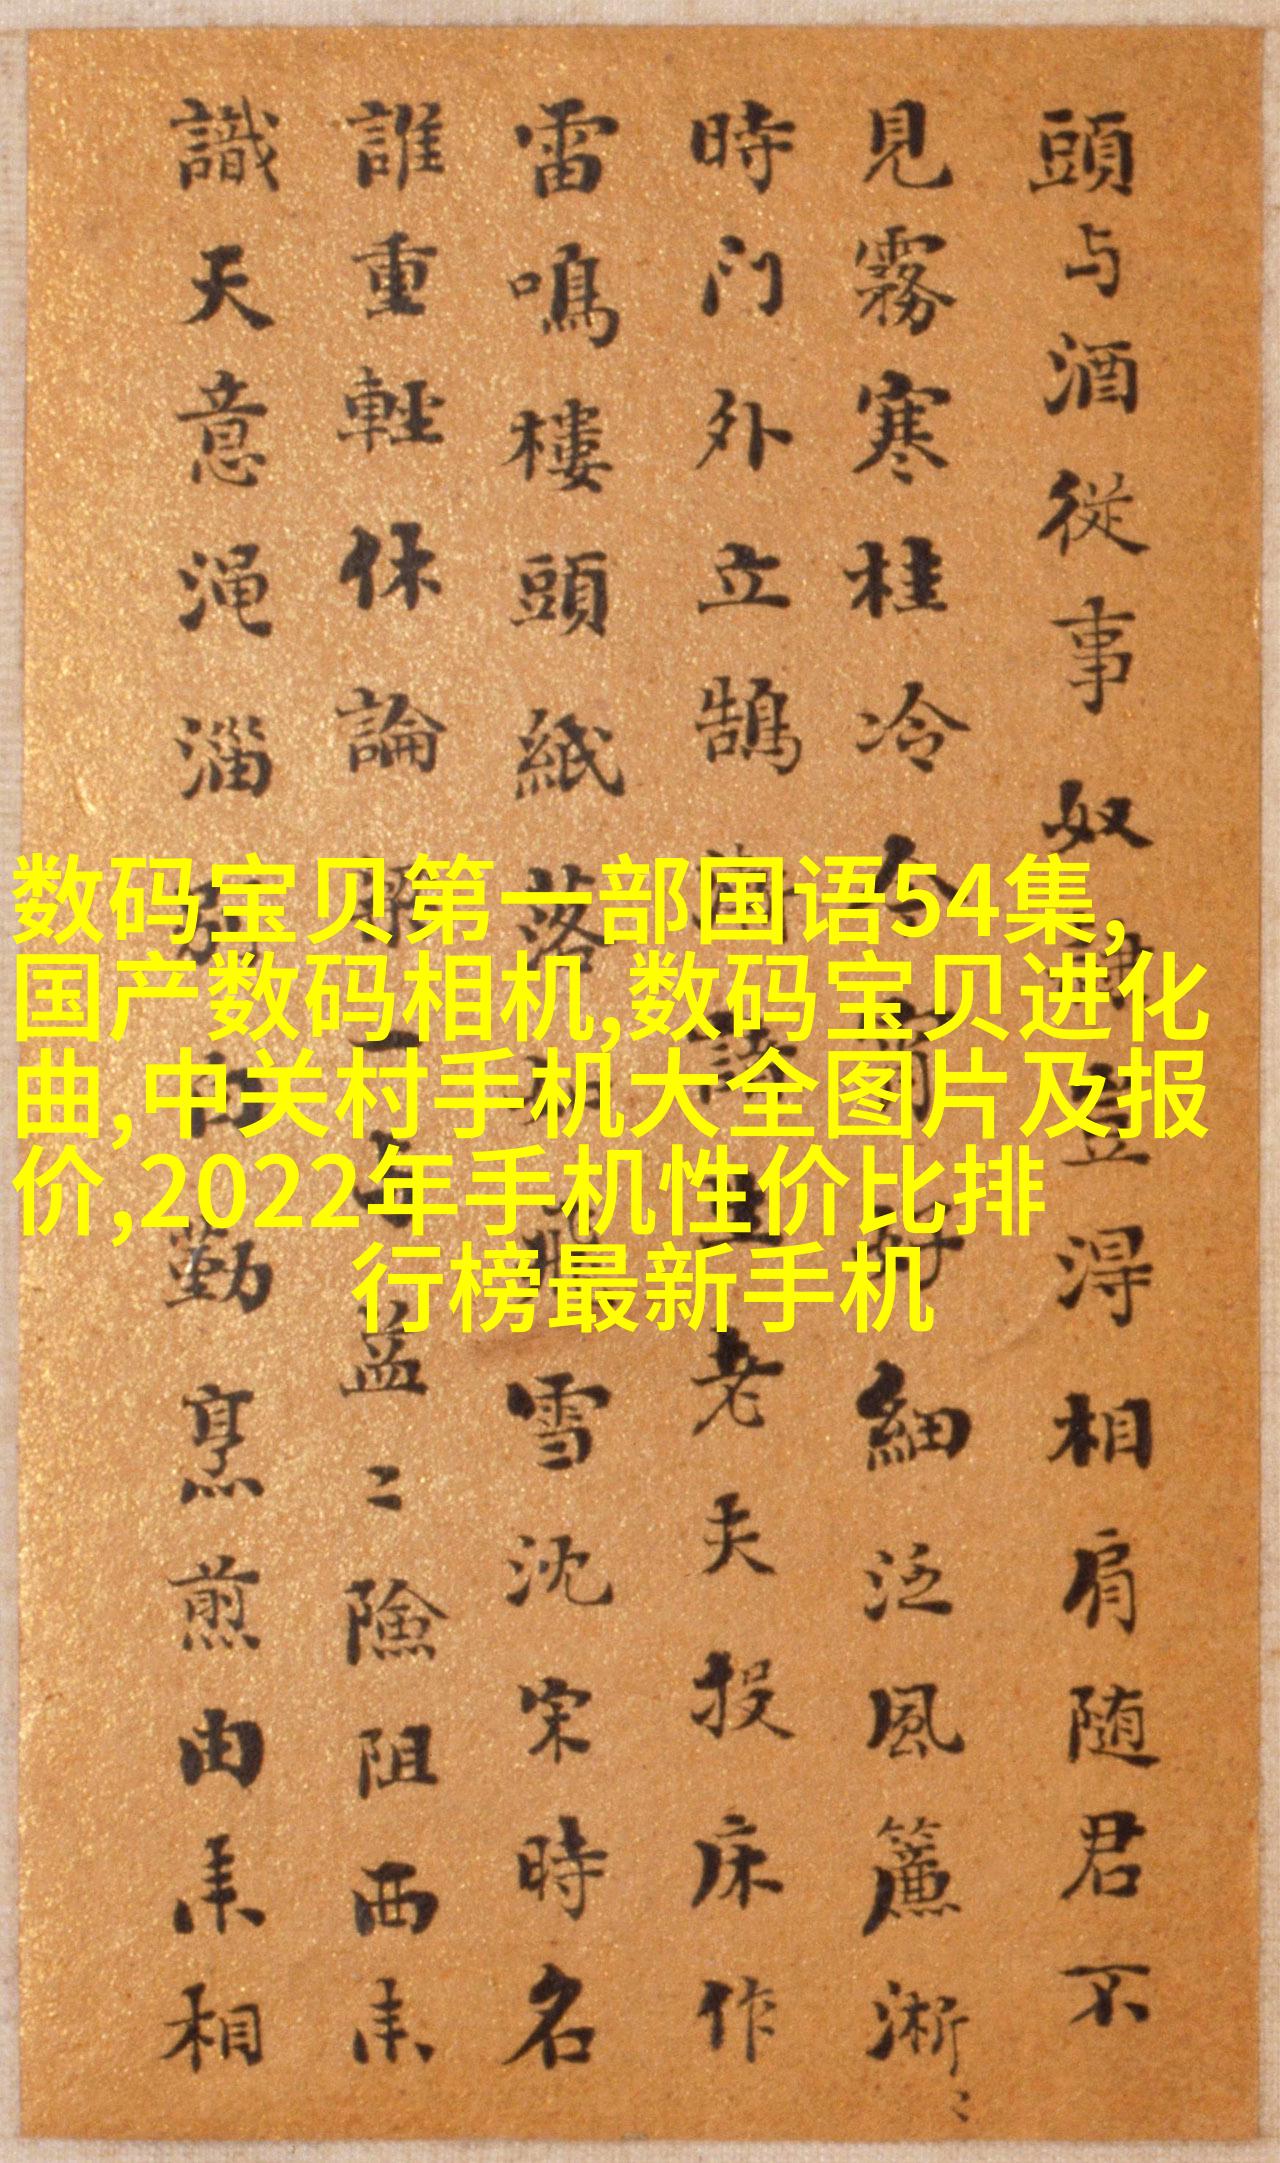 頭与酒從事奴豈淂相肩随君不
見霧寒桂冷人好細泛風簾淅〻
時门外立鵠老夫投床作
雷鳴樓頭紙落如雪沈宋時名
誰重輕休論一益〻險阻西来
識天意渑淄勤烹煎由来相
数码宝贝第一部国语54集,
国产数码相机,数码宝贝进化
曲,中关村手机大全图片及报
价,2022年手机性价比排
行榜最新手机